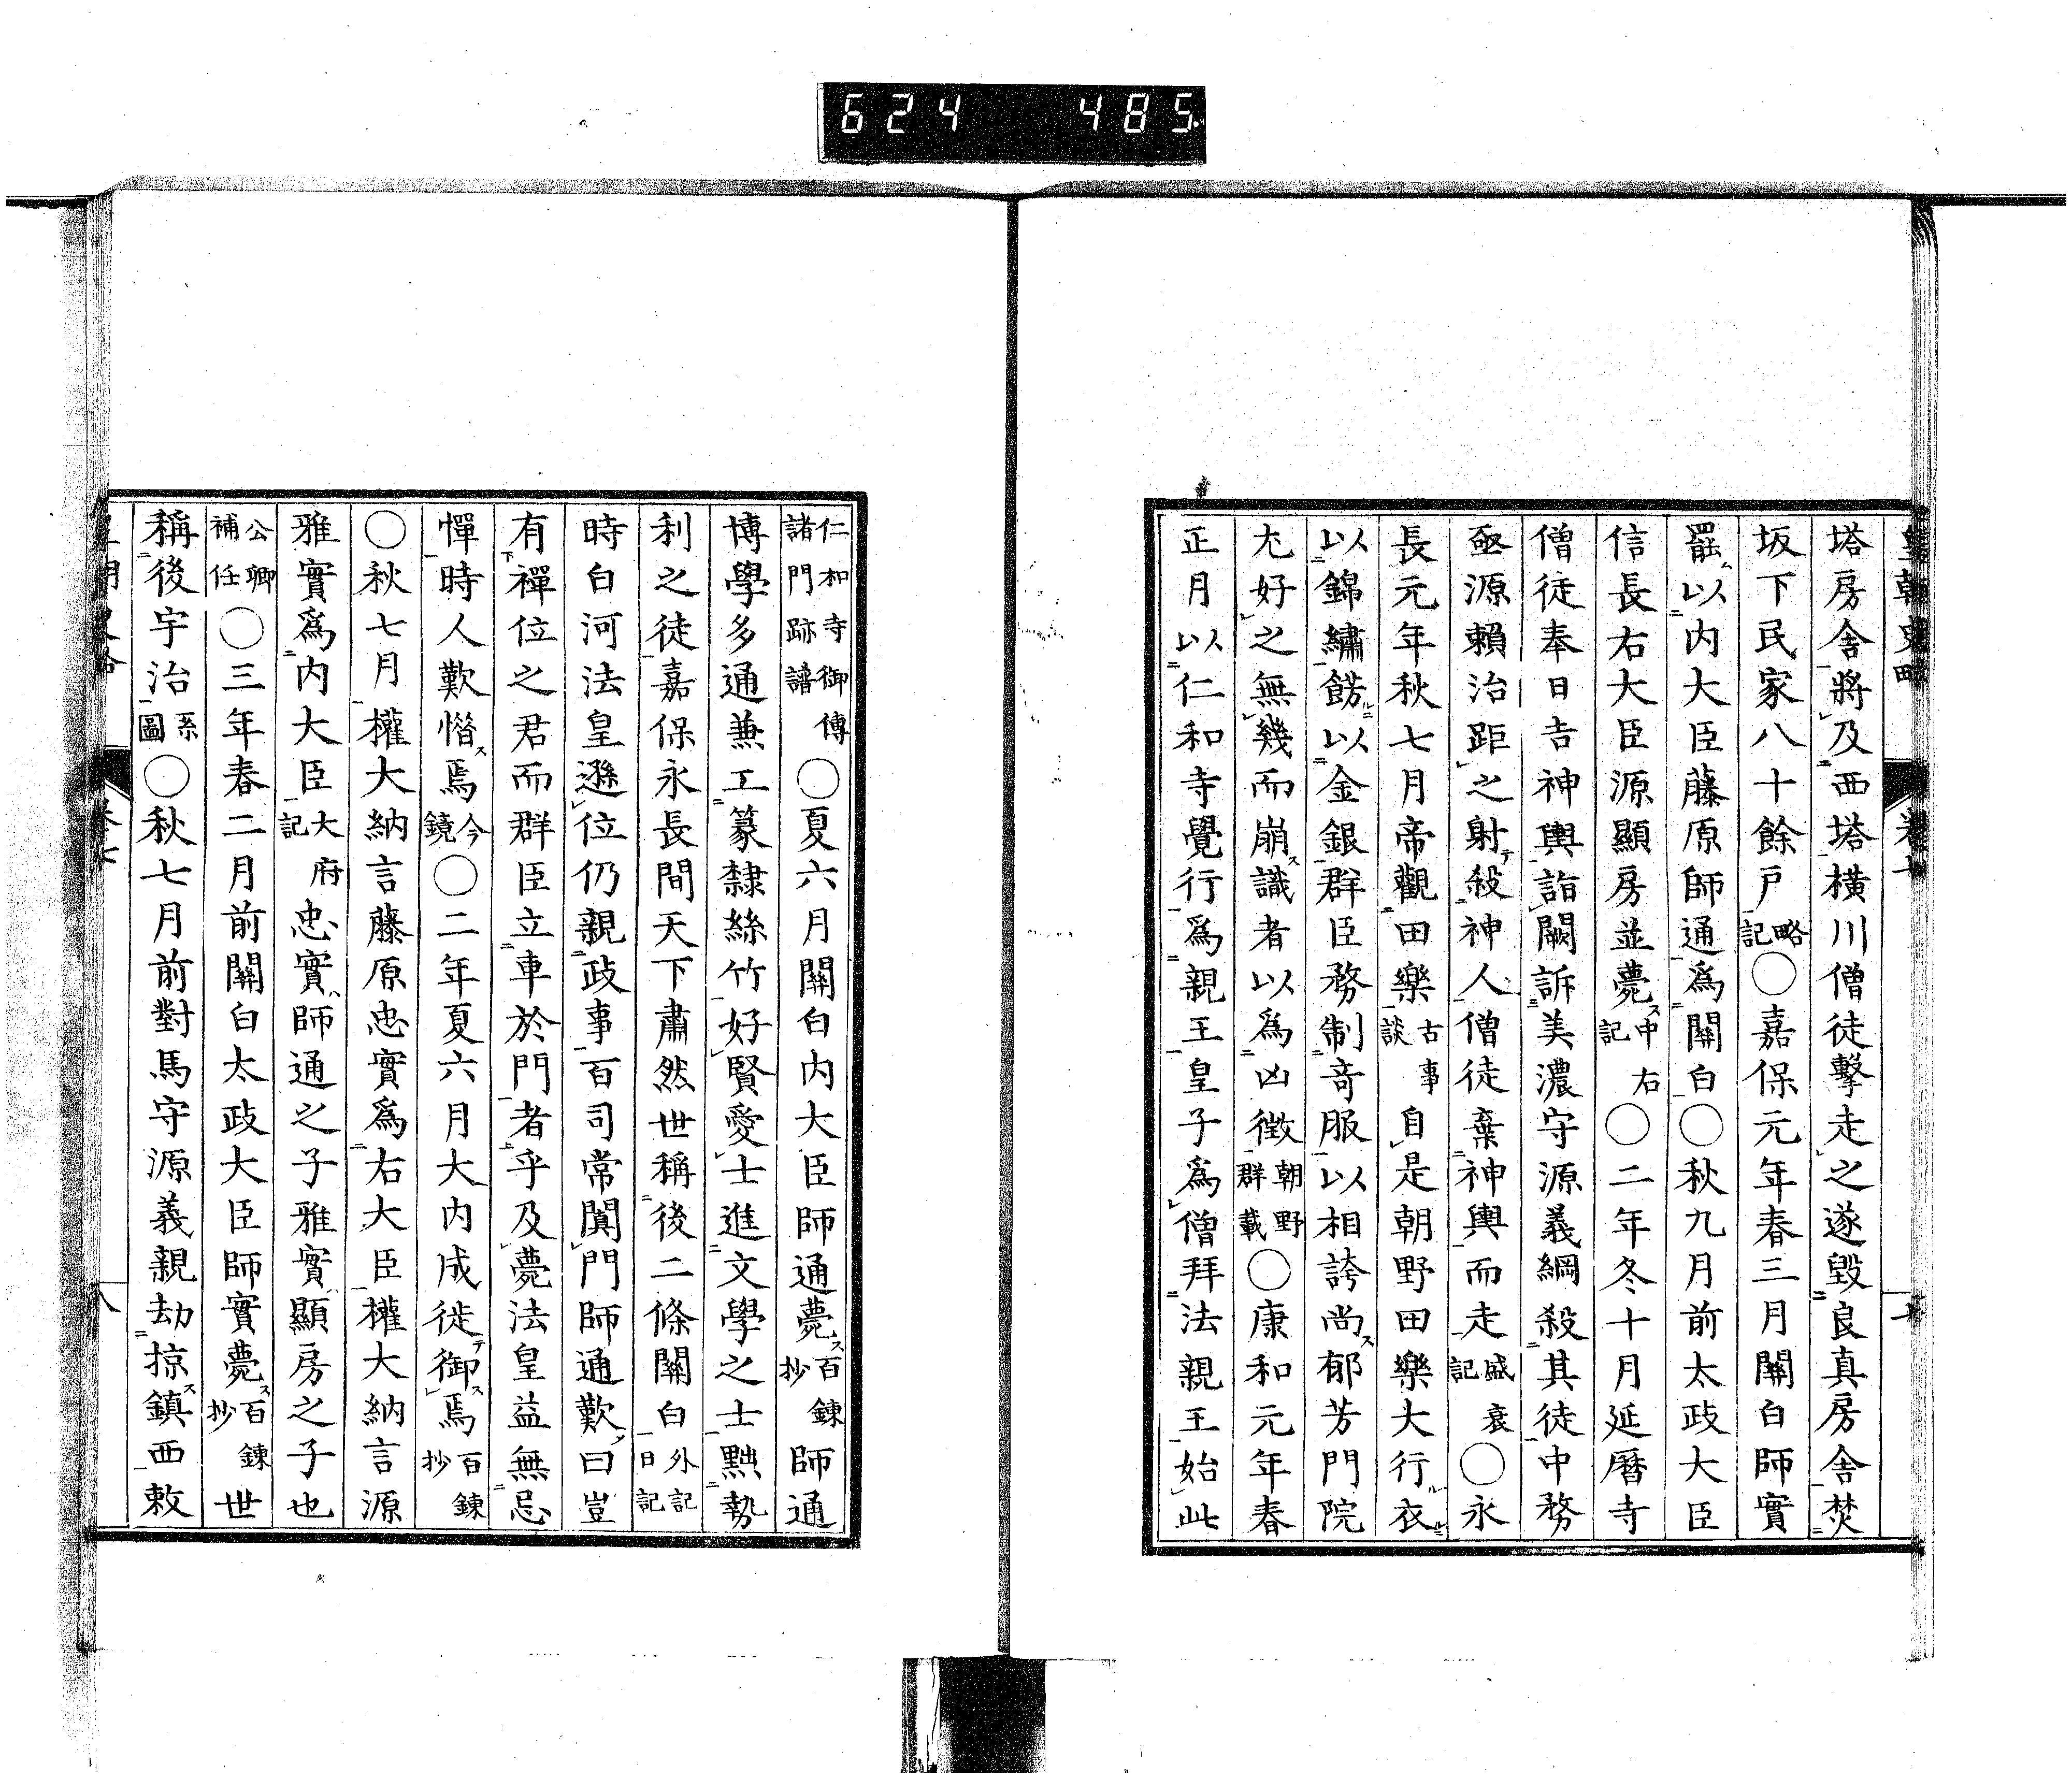 624 485
皇朝史略 卷七 七
塔房舎將及西塔橫川僧徒擊走之遂毀良真房舎焚
坂下民家八十餘戸略記○嘉保元年春三月關白師實
罷以内大臣藤原師通爲關白○秋九月前太政大臣
信長右大臣源顯房並薨中右記○二年冬十月延曆寺
僧徒奉日吉神輿詣闕訴美濃守源義綱殺其徒中務
丞源賴治距之射殺神人僧徒棄神輿而走盛衰記○永
長元年秋七月帝觀田樂古事談自是朝野田樂大行衣
以錦繡餝以金銀群臣務制奇服以相誇尚郁芳門院
尤好之無幾而崩識者以爲凶徵朝野群載○康和元年春
正月以仁和寺覺行爲親王皇子爲僧拜法親王始此
仁和寺御傳諸門跡譜○夏六月關白内大臣師通薨百鍊抄師通
博學多通兼工篆隸絲竹好賢愛士進文學之士黜勢
利之徒嘉保永長間天下肅然世稱後二條關白外記日記
時白河法皇遜位仍親政事百司常闐門師通歎曰豈
有禪位之君而群臣立車於門者乎及薨法皇益無忌
憚時人歎惜焉今鏡○二年夏六月大内成徙御焉百鍊抄
○秋七月權大納言藤原忠實爲右大臣權大納言源
雅實爲内大臣大府記忠實師通之子雅實顯房之子也
公卿補任○三年春二月前關白太政大臣師實薨百鍊抄世
稱後宇治系圖○秋七月前對馬守源義親劫掠鎮西敕
八